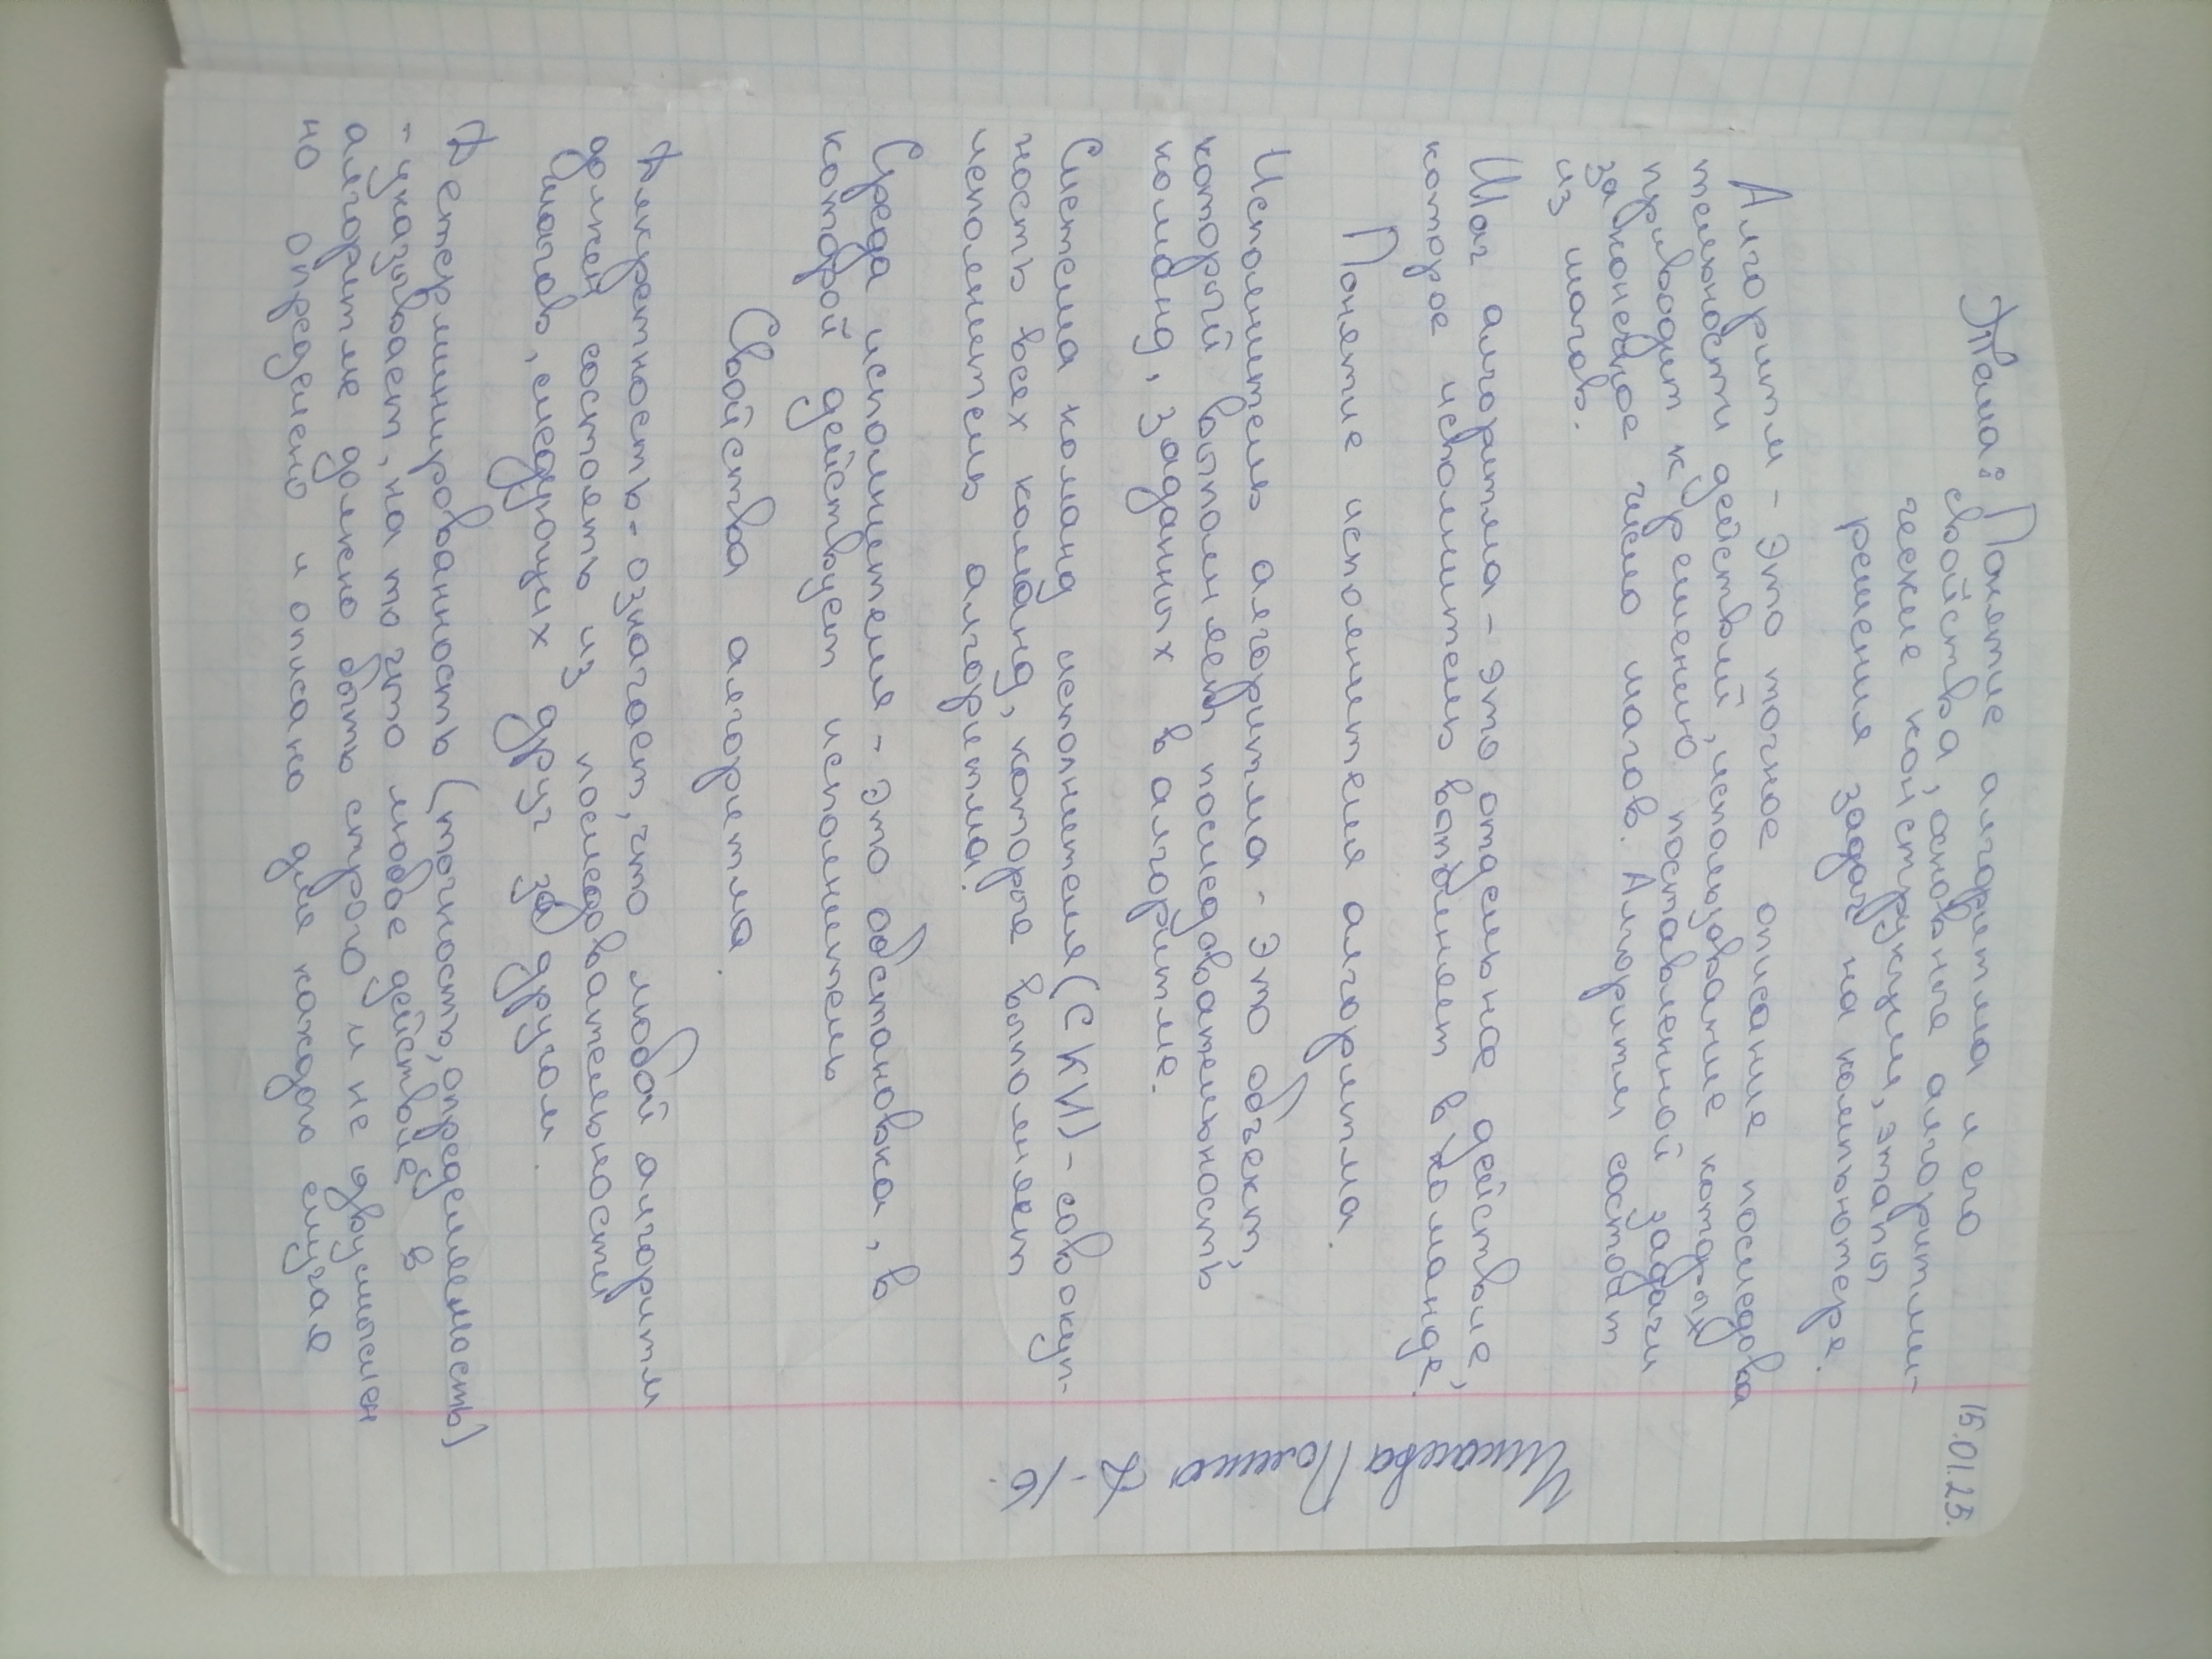 15.01.25.
Тема: Понятие алгоритма и его
свойства, основные алгоритми-
ческие конструкции, этапы
решения задач на компьютере.
Алгоритм - это точное описание последова
тельности действий, использование которых
приводит к решению поставленной задачи
за конечное число шагов. Алгоритм состоит
из шагов.
Шаг алгоритма - это отдельное действие,
которое исполнитель выполняет в команде.
Понятие исполнителя алгоритма.
Исполнитель алгоритма - это объект,
который выполняет последовательность
команд, заданных в алгоритме.
Система команд исполнителя (СКИ) - совокуп-
ность всех команд, которые выполняет
исполнитель алгоритма.
Среда исполнителя - это обстановка, в
которой действует исполнитель
Свойства алгоритма.
Дикретность - означает, что любой алгоритм
должен состоять из последовательности
шагов, следующих друг за другом.
Детерминированность (точность, определенность)
- указывает, на то что любое действие в
алгоритме должно быть строго и не двусмыслен
но определено и описано для каждого случая
Полина